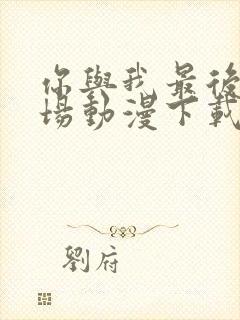 你與我最後
場動漫下載
劉府